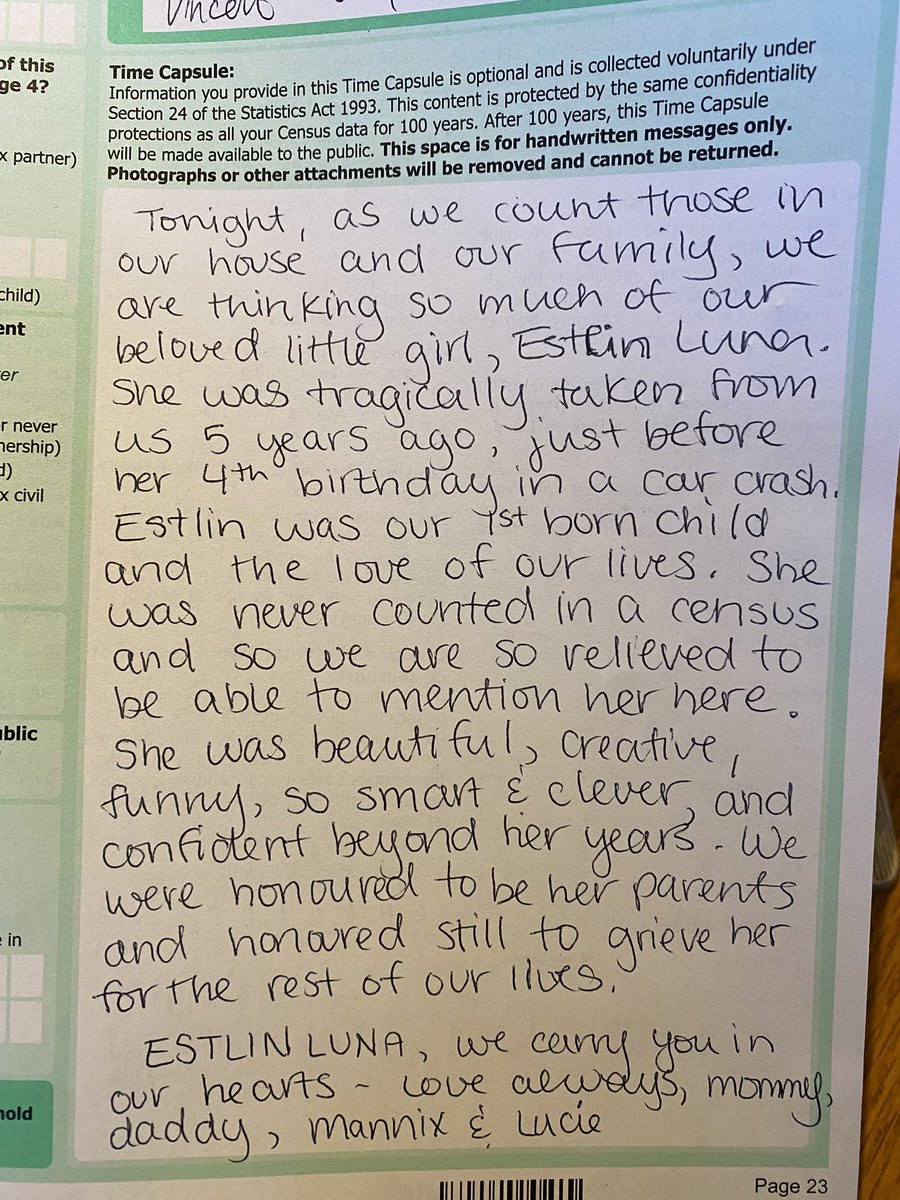 Vincent
of this
ge 4?
x partner)
child)
ent
er
r never
nership)
d)
x civil
ublic
e in
hold
Time Capsule:
Information you provide in this Time Capsule is optional and is collected voluntarily under
Section 24 of the Statistics Act 1993. This content is protected by the same confidentiality
protections as all your Census data for 100 years. After 100 years, this Time Capsule
will be made available to the public. This space is for handwritten messages only.
Photographs or other attachments will be removed and cannot be returned.
Tonight, as we count those in
our house and our family, we
are thinking so much of our
beloved little girl, Estlin Luna.
She was tragically taken from
us 5 years ago, just before
her 4th birthday in a car crash.
Estlin was our 1st born child
and the love of our lives. She
was never counted in a census
and so we are so relieved to
be able to mention her here.
She was beautiful, creative,
funny, so smart & clever, and
confident beyond her years. We
were honoured to be her parents
and honoured still to grieve her
for the rest of our lives.
ESTLIN LUNA, we carry you in
our hearts - Love always, mommy,
daddy, Mannix & Lucie
Page 23